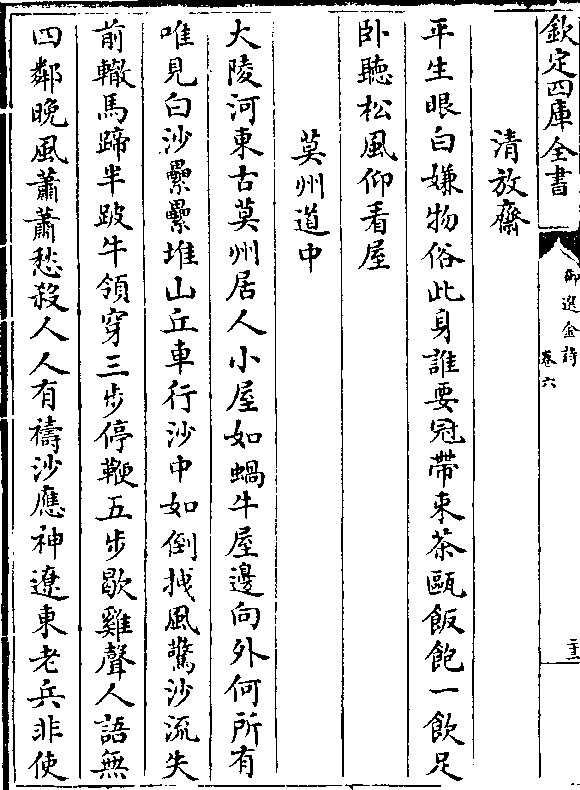 欽定四庫全書
御選金詩
卷六
清放齋
平生眼白嫌物俗此身誰要冠帶束茶甌飯飽一飲足
卧聽松風仰看屋
莫州道中
大陵河東古莫州居人小屋如蝸牛屋邊向外何所有
唯見白沙纍纍堆山丘車行沙中如倒拽風驚沙流失
前轍馬蹄半跛牛領穿三步停鞭五步歇雞聲人語無
四鄰晚風蕭蕭愁殺人人有禱沙應神遼東老兵非使